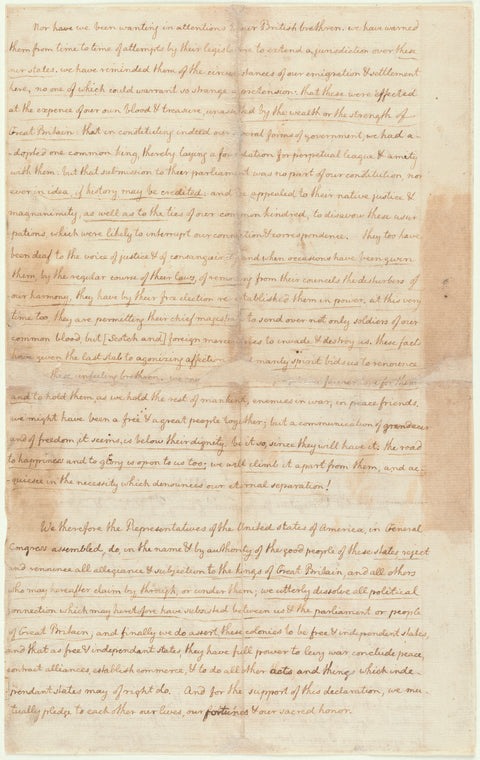 Nor have we been wanting in attentions our British brethren. we have warned
them from time to time of attempts by their legisla re to extend a jurisdiction over these
our states. we have reminded them of the circum stances of our emigration & settlement
here, no one of which could warrant so strange a pretension: that these were effected
at the expence of our own blood & treasure, unassisted by the wealth or the strength of
Great Britain: that in constituting indeed our several forms of government, we had a-
-dopted one common king, thereby laying a foundation for perpetual league & amity
with them: but that submission to their parliament was no part of our constitution, nor
ever in idea, if history may be credited: and we appealed to their native justice &
magnanimity, as well as to the ties of our common kindred, to disavow these usur-
pations, which were likely to interrupt our connection & correspondence. They too have
been deaf to the voice of justice & of consanguinity, and when occasions have been given
them, by the regular course of their laws, of removing from their councils the disturbers of
our harmony, they have by their free election re-established them in power. at this very
time too they are permitting their chief magistrate to send over not only soldiers of our
common blood, but [Scotch and] foreign mercenaries to invade & destroy us. these facts
have given the last stab to agonizing affection, and manly spirit bids us to renounce
these unfeeling brethren. we
and to hold them, as we hold the rest of mankind, enemies in war, in peace friends.
we might have been a free & a great people together; but a communication of grandeur
and of freedom, it seems, is below their dignity. be it so, since they will have it: the road
to happiness and to glory is open to us too; we will climb it apart from them, and ac-
-quiesce in the necessity which denounces our eternal separation!
We therefore the Representatives of the United States of America, in General
Congress assembled, do, in the name & by authority of the good people of these states reject
and renounce all allegiance & subjection to the kings of Great Britain, and all others
who may hereafter claim by, through, or under them; we utterly dissolve all political
connection which may heretofore have subsisted between us & the parliament or people
of Great Britain; and finally we do assert these colonies to be free & independent states,
and that as free & independent states, they have full power to levy war, conclude peace,
contract alliances, establish commerce, & to do all other acts and things which inde-
pendent states may of right do. And for the support of this declaration, we mu-
tually pledge to each other our lives, our fortunes & our sacred honor.